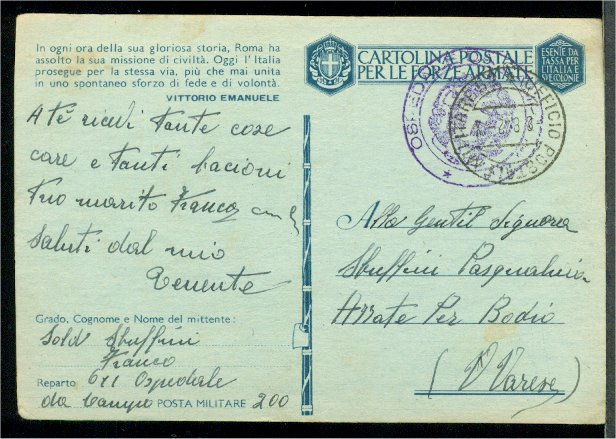 In ogni ora della sua gloriosa storia, Roma ha
assolto la sua missione di civiltà. Oggi l'Italia
prosegue per la stessa via, più che mai unita
in uno spontaneo sforzo di fede e di volontà.
VITTORIO EMANUELE
A te ricevi tante cose
care e tanti bacioni
tuo marito Franco
Saluti dal mio
Tenente
Grado, Cognome e Nome del mittente:
Sold Sbuffini
Franco
Reparto 611 Ospedale
da Campo POSTA MILITARE 200
CARTOLINA POSTALE
PER LE FORZE ARMATE
ESENTE DA
TASSA PER
L'ITALIA E
SUE COLONIE
UFFICIO POSTALE
Alla Gentil Signora
Sbuffini
Azzate Per Bodio
(Varese)